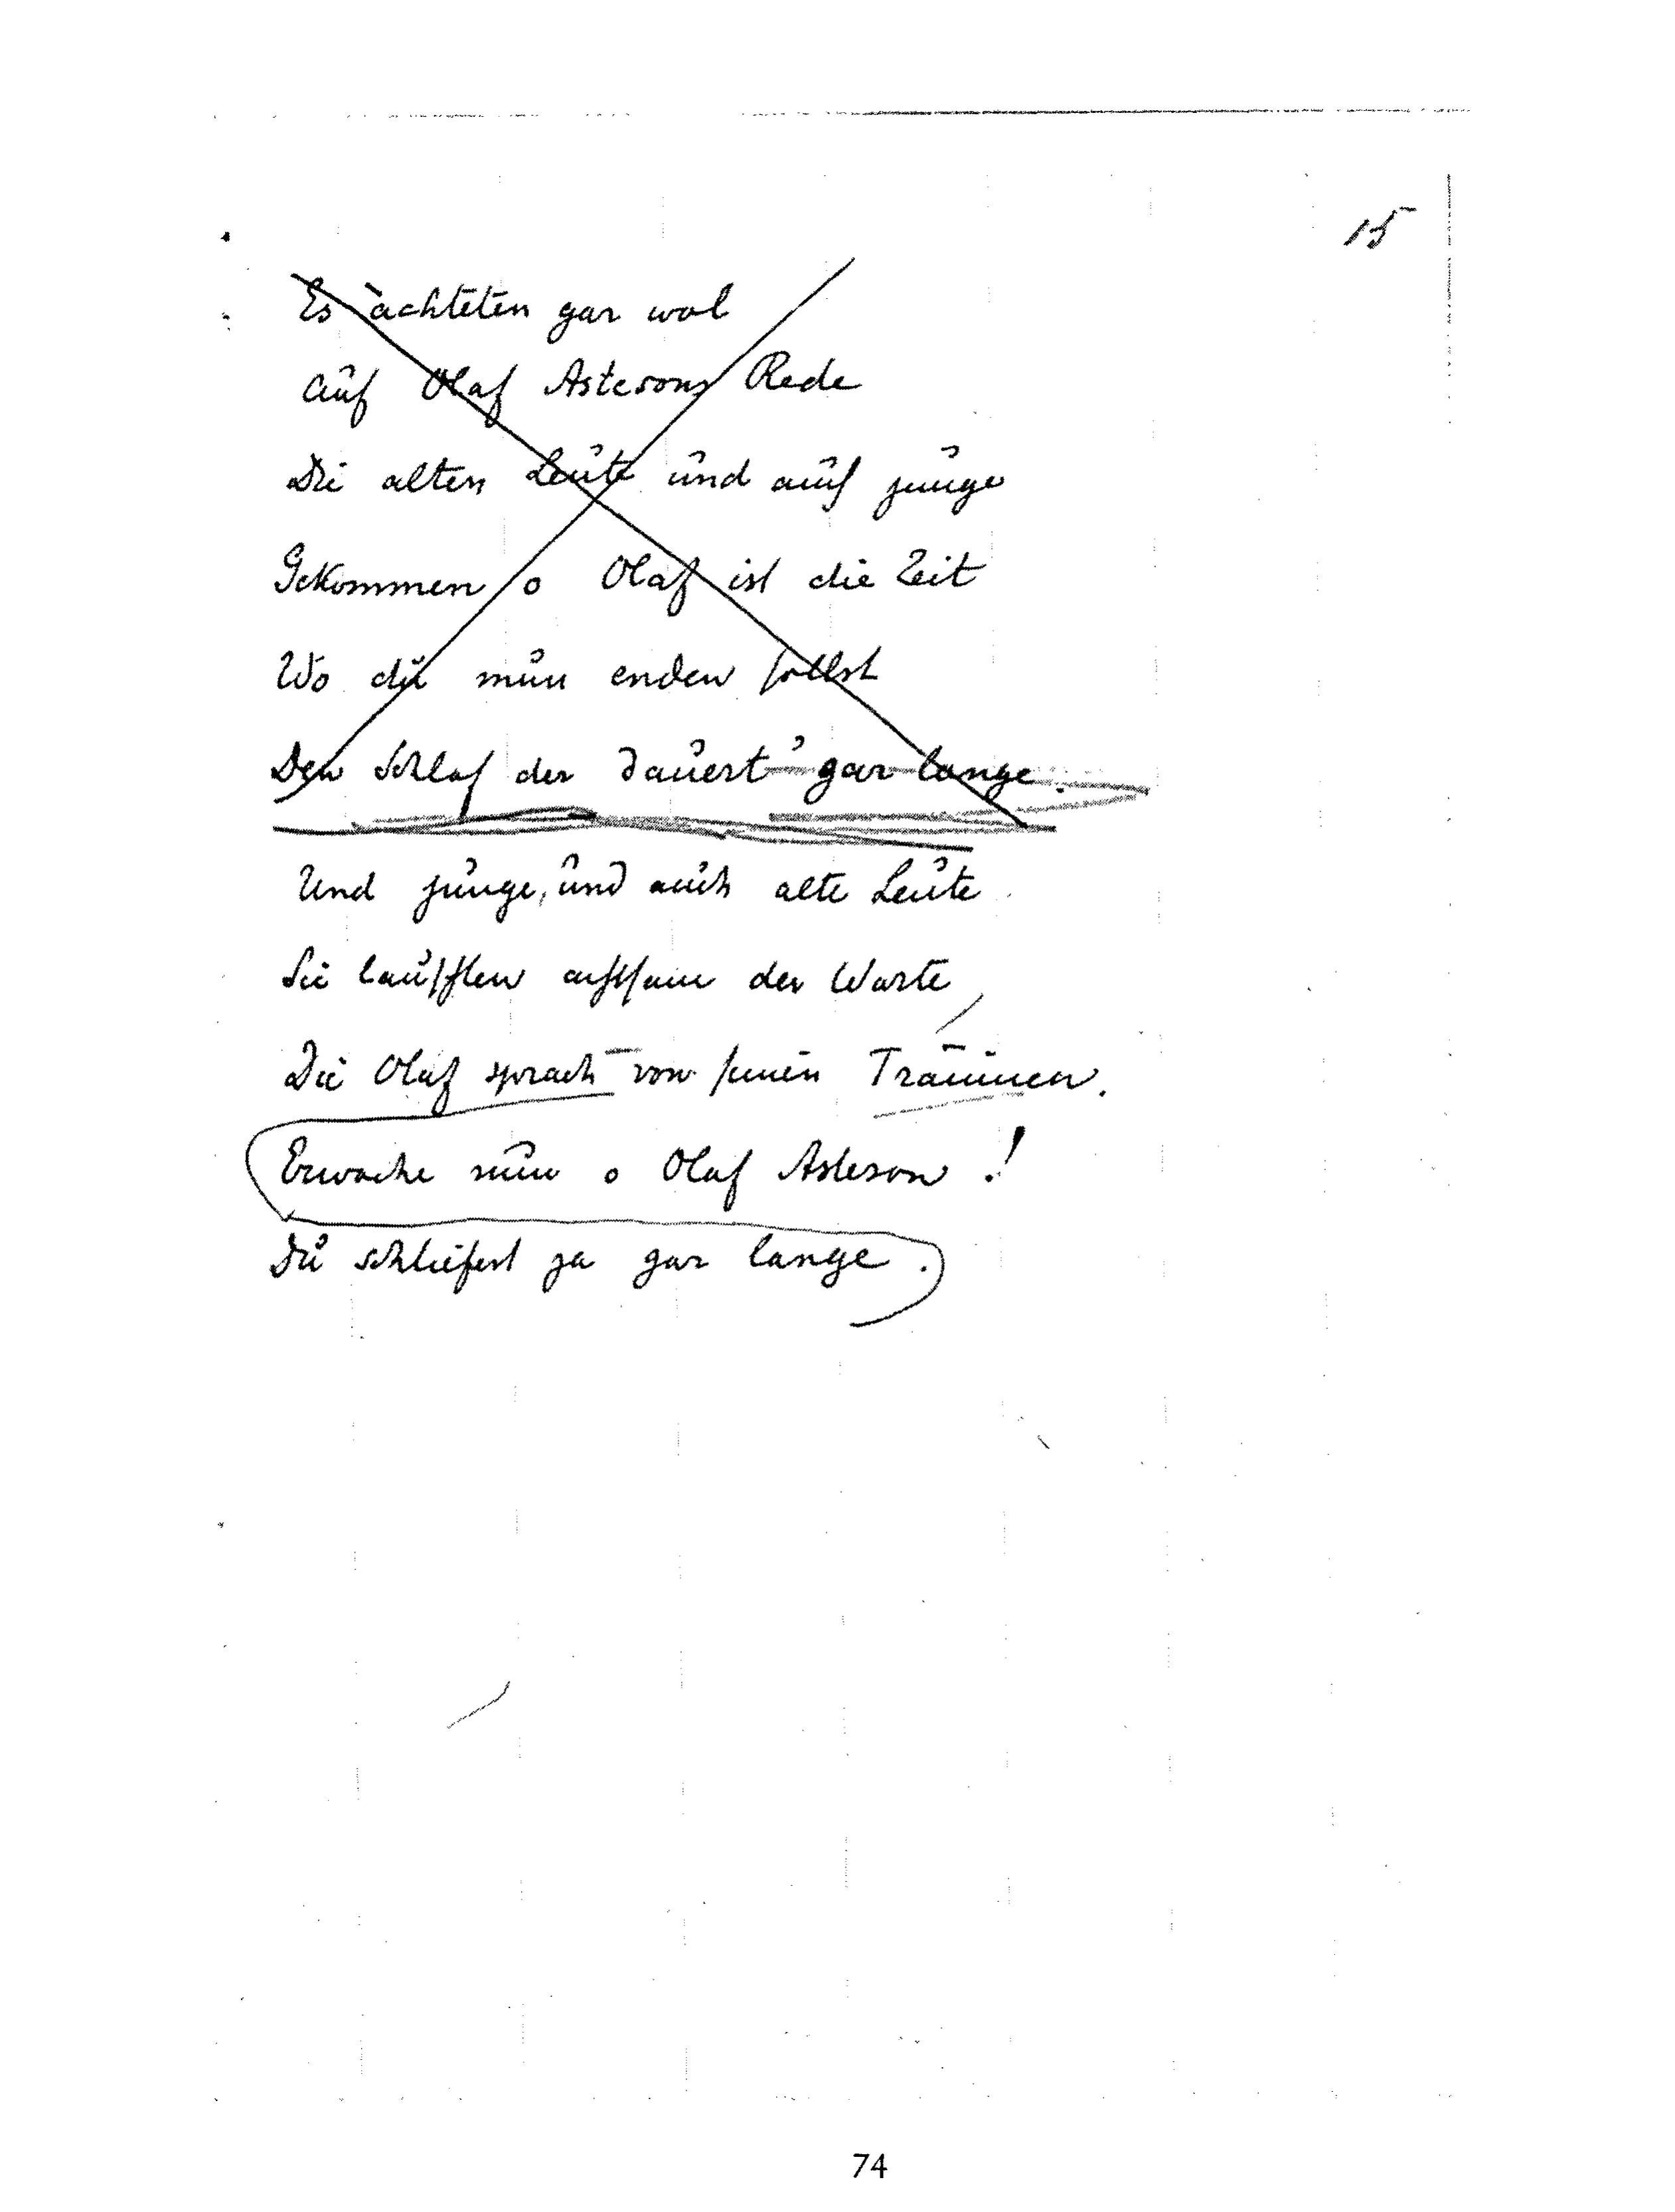 15
Es achteten gar wol
Auf Olaf Astesons Rede
Die alten Leute und auch junge
Gekommen o Olaf ist die Zeit
Wo du nun enden sollst
Den Schlaf der dauert gar lange.
Und junge, und auch alte Leute
Sie lauschten der Worte
Die Olaf sprach von seinen Träumen.
Erwache nun o Olaf Asteson !
Du schliefest ja gar lange.
74